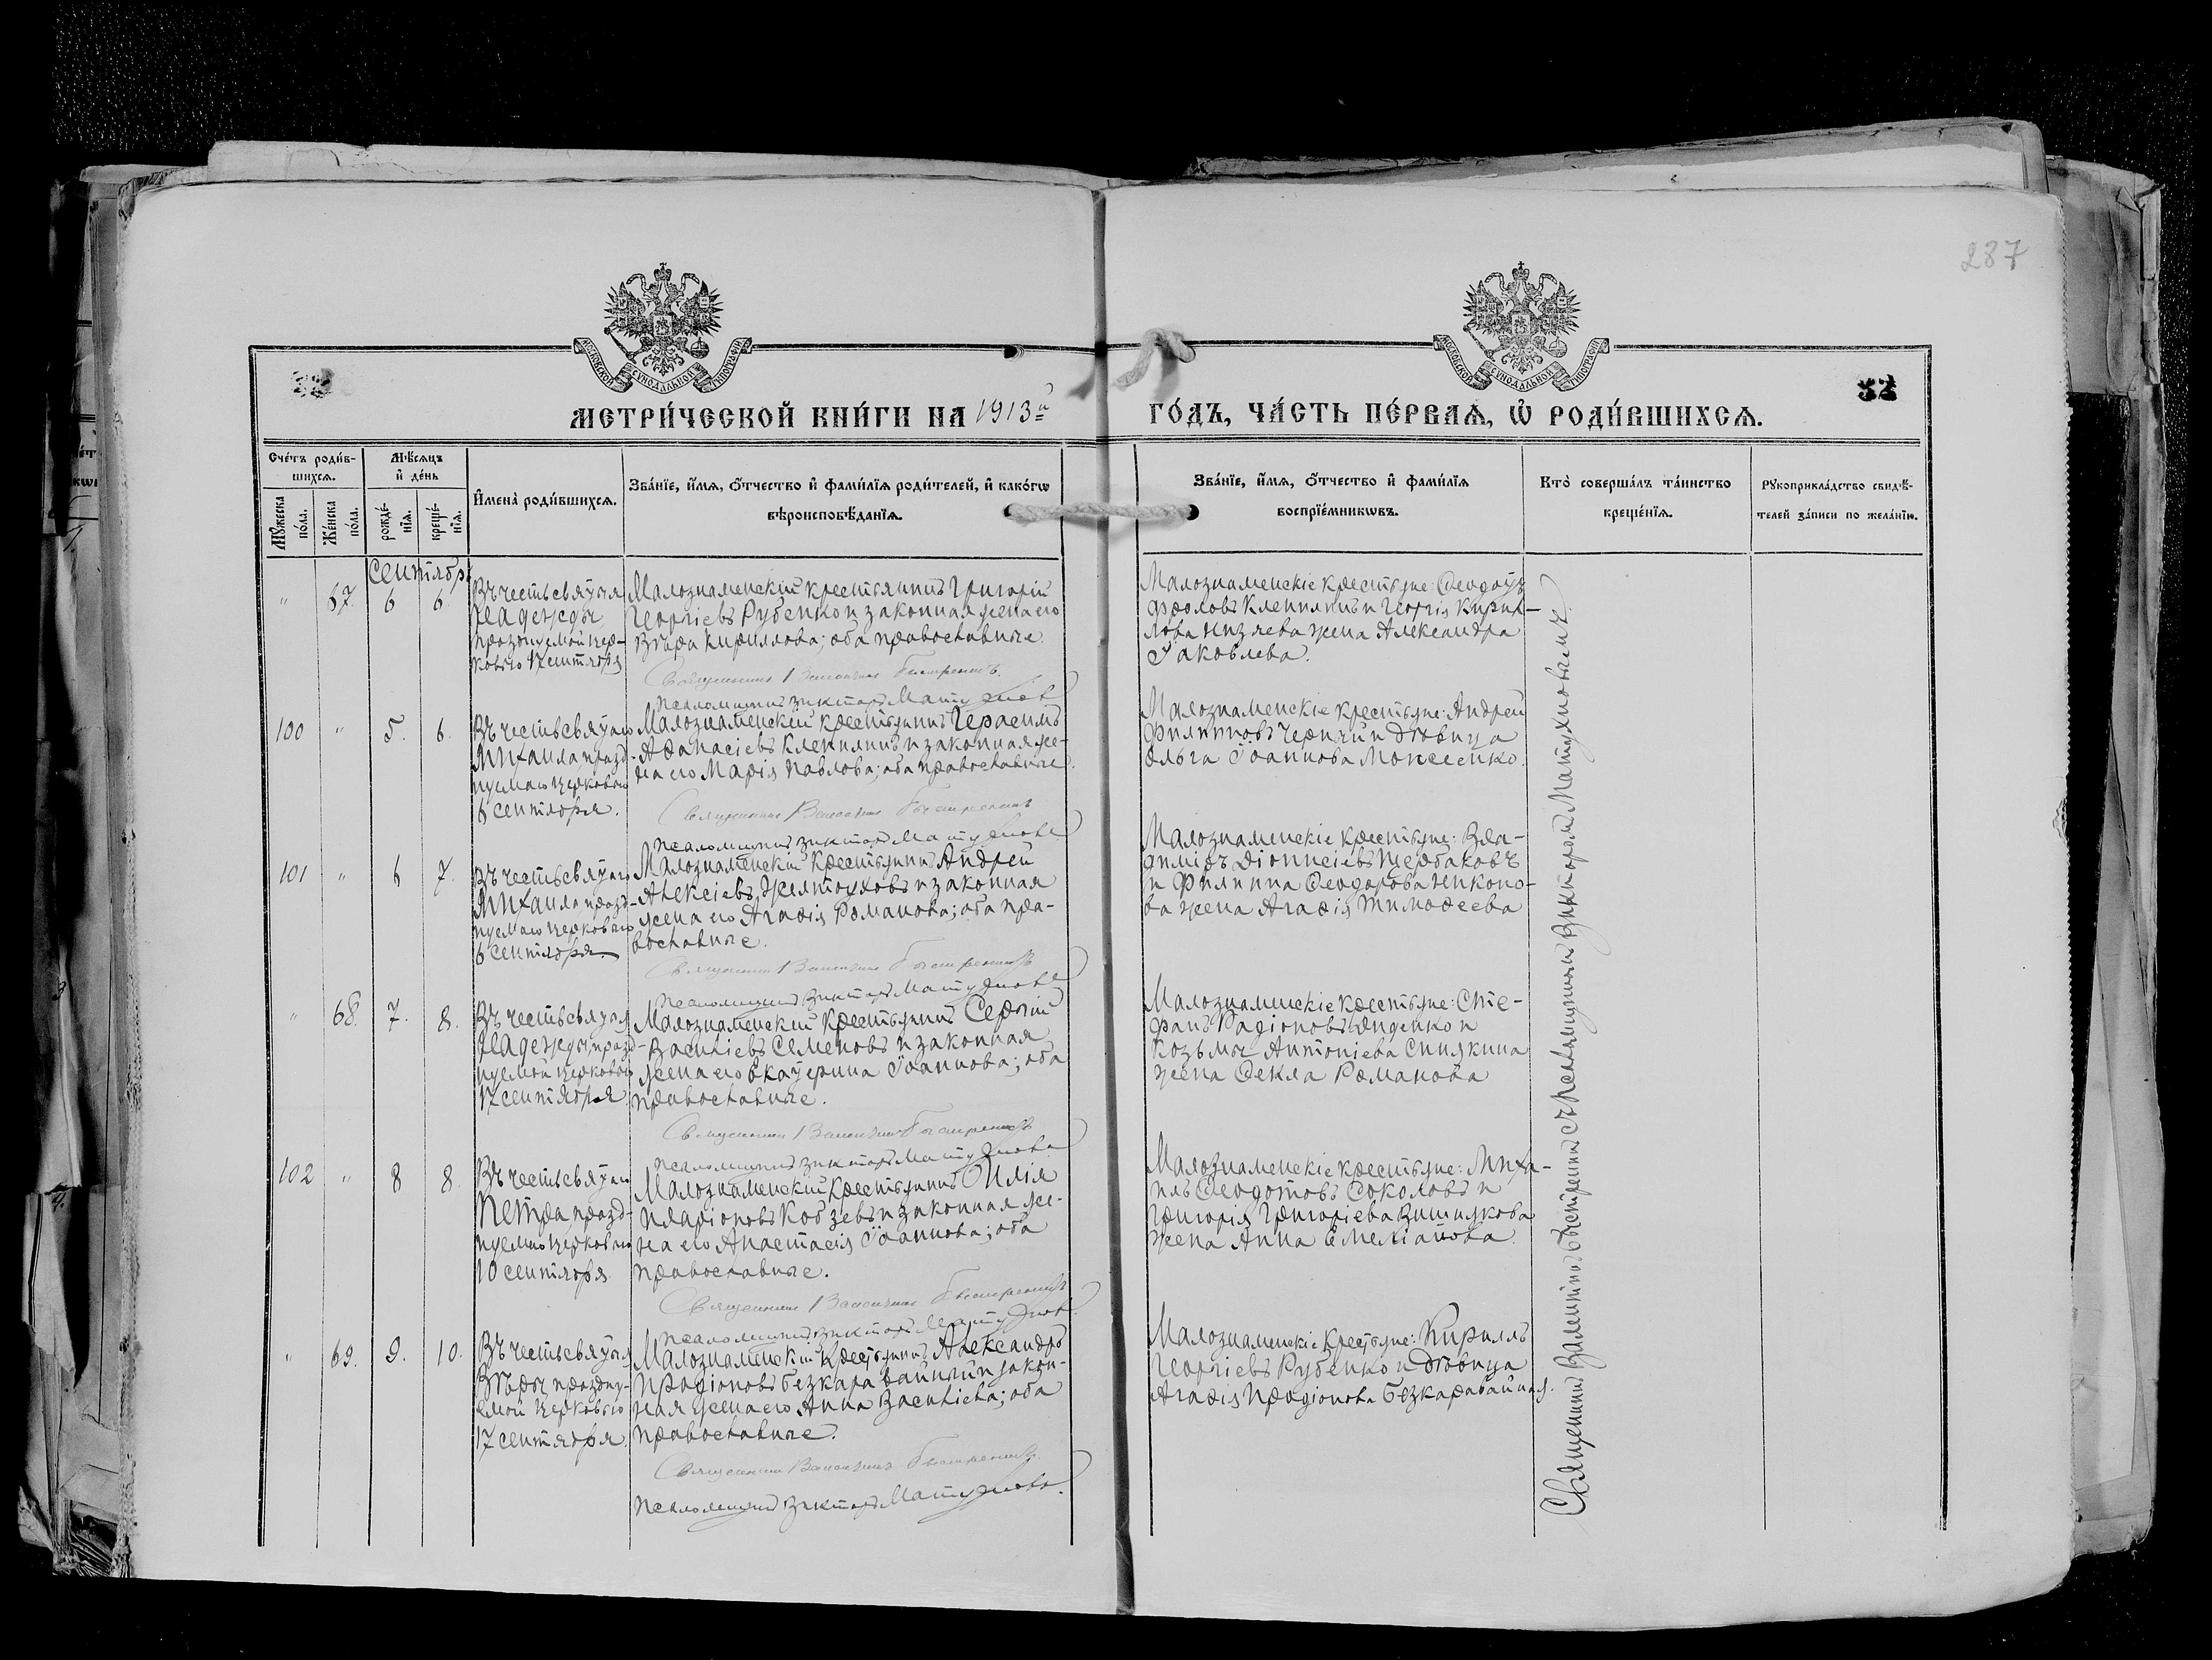 287
МОСКОВСКОЙ СѴНОДАЛЬНОЙ ТИПОГРАФІИ
МОСКОВСКОЙ СѴНОДАЛЬНОЙ ТИПОГРАФІИ
32
МЕТРИ́ЧЕСКОЙ КНИ́ГИ НА 1913й ГО́ДЪ, ЧА́СТЬ ПЕ́РВАѦ, Ѽ РОДИ́ВШИХСѦ.
Сче́тъ роди́в-
шихсѧ.
Мѣ́сѧцъ
и҆ де́нь
Мꙋ́жеска
по́ла.
Же́нска
по́ла.
рожде́-
нїѧ.
креще́-
нїѧ.
И҆мена̀ роди́вшихсѧ.
Зва́нїе, и҆́мѧ, ѻ҆́тчество и҆ фами́лїѧ роди́телей, и҆ како́гѡ
вѣроисповѣ́данїѧ.
Зва́нїе, и҆́мѧ, ѻ҆́тчество и҆ фами́лїѧ
воспрїе́мникѡвъ.
Кто̀ соверша́лъ та́инство
креще́нїѧ.
Рꙋкоприкла́дство свидѣ́-
телей за́писи по жела́нїю.
Сентябрь
" 67. 6 6.
Въ честь святыя
Надежды
празднуемой цер-
ковью 17 сентября
Малознаменскій крестьянинъ Григорій
Георгіевъ Рубенко и законная жена его
Вѣра Кириллова; оба православные
Священникъ Валентинъ Быстренинъ.
Псаломщикъ Викторъ Матухновъ
Малознаменскіе крестьяне: Феодотъ
Фроловъ Клепининъ и Георгія Кирил-
лова Князева жена Александра
Іаковлева.
100 " 5. 6.
Въ честь святаго
Михаила празд-
нуемаго церковью
6 сентября.
Малознаменскій крестьянинъ Герасимъ
Афанасіевъ Клепининъ и законная же-
на его Марія Павлова; оба православные.
Священникъ Валентинъ Быстренинъ
Псаломщикъ Викторъ Матухновъ
Малознаменскіе крестьяне: Андрей
Филипповъ Черный и дѣвица
Ольга Іоаннова Моисеенко.
101 " 6 7.
Въ честь святаго
Михаила празд-
нуемаго церковью
6 сентября.
Малознаменскій крестьянинъ Андрей
Алексіевъ Желтоуховъ и законная
жена его Агафія Романова; оба пра-
вославные.
Священникъ Валентинъ Быстренинъ
Псаломщикъ Викторъ Матухновъ
Малознаменскіе крестьяне: Вла-
диміръ Діонисіевъ Щербаковъ
и Филиппа Феодорова Никоно-
ва жена Агафія Тимофеева
" 68. 7. 8.
Въ честь святыя
Надежды празд-
нуемой церковью
17 сентября
Малознаменскій крестьянинъ Сергій
Василіевъ Семеновъ и законная
жена его Екатерина Іоаннова; оба
православные.
Священникъ Валентинъ Быстренинъ
Псаломщикъ Викторъ Матухновъ
Малознаменскіе крестьяне: Сте-
фанъ Радіоновъ Диденко и
Козьмы Антоніева Синякина
жена Фекла Романова
102 " 8 8.
Въ честь святаго
Петра празд-
нуемаго церковью
10 сентября
Малознаменскій крестьянинъ Илія
Иларіоновъ Кобзевъ и законная же-
на его Анастасія Іоаннова; оба
православные.
Священникъ Валентинъ Быстренинъ
Псаломщикъ Викторъ Матухновъ
Малознаменскіе крестьяне: Миха-
илъ Феодотовъ Соколовъ и
Григорія Григоріева Вишнякова
жена Анна Емеліанова
" 69. 9. 10.
Въ честь святыя
Вѣры празdну-
емой церковью
17 сентября.
Малознаменскій крестьянинъ Александръ
Иродіоновъ Безкаравайный и закон-
ная жена его Анна Василіева; оба
православные.
Священникъ Валентинъ Быстренинъ.
Псаломщикъ Викторъ Матухновъ.
Малознаменскіе крестьяне: Кириллъ
Георгіевъ Рубенко и дѣвица
Агафія Иродіонова Безкаравайная.
Священникъ Валентинъ Быстренинъ съ псаломщикомъ Викторомъ Матухновымъ.